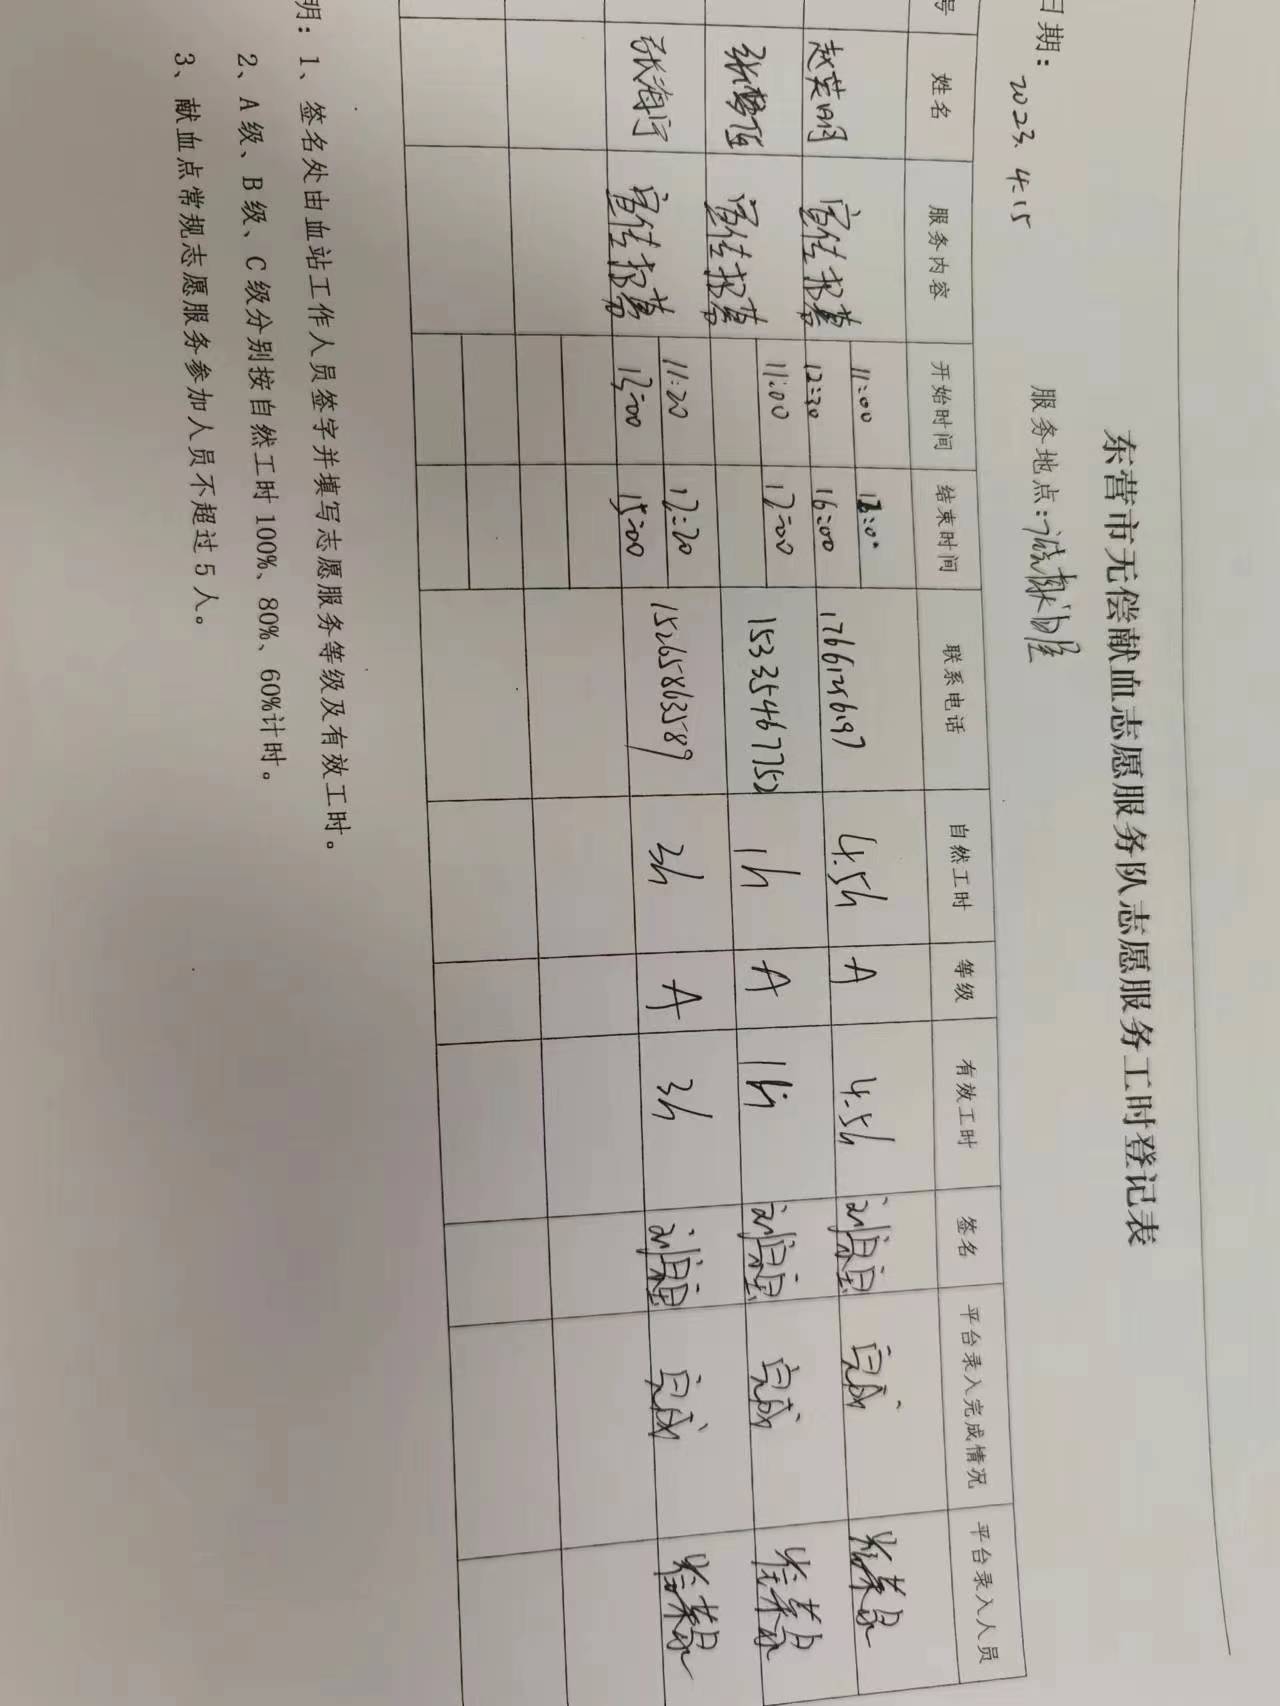 东营市无偿献血志愿服务队志愿服务工时登记表
日期：2023.4.15 服务地点：流献血屋
号 姓名 服务内容 开始时间 结束时间 联系电话 自然工时 等级 有效工时 签名 平台录入完成情况 平台录入人员
赵英明 宣传招募 11:00 4.5h A 4.5h 完成
12:30 16:00
张 宣传招募 11:00 12:00 15335467752 1h A 1h 完成
张海宁 宣传招募 11:20 12:20 15265863589 3h A 3h 完成
13:00 15:00
明：1、签名处由血站工作人员签字并填写志愿服务等级及有效工时。
2、A级、B级、C级分别按自然工时100%、80%、60%计时。
3、献血点常规志愿服务参加人员不超过5人。